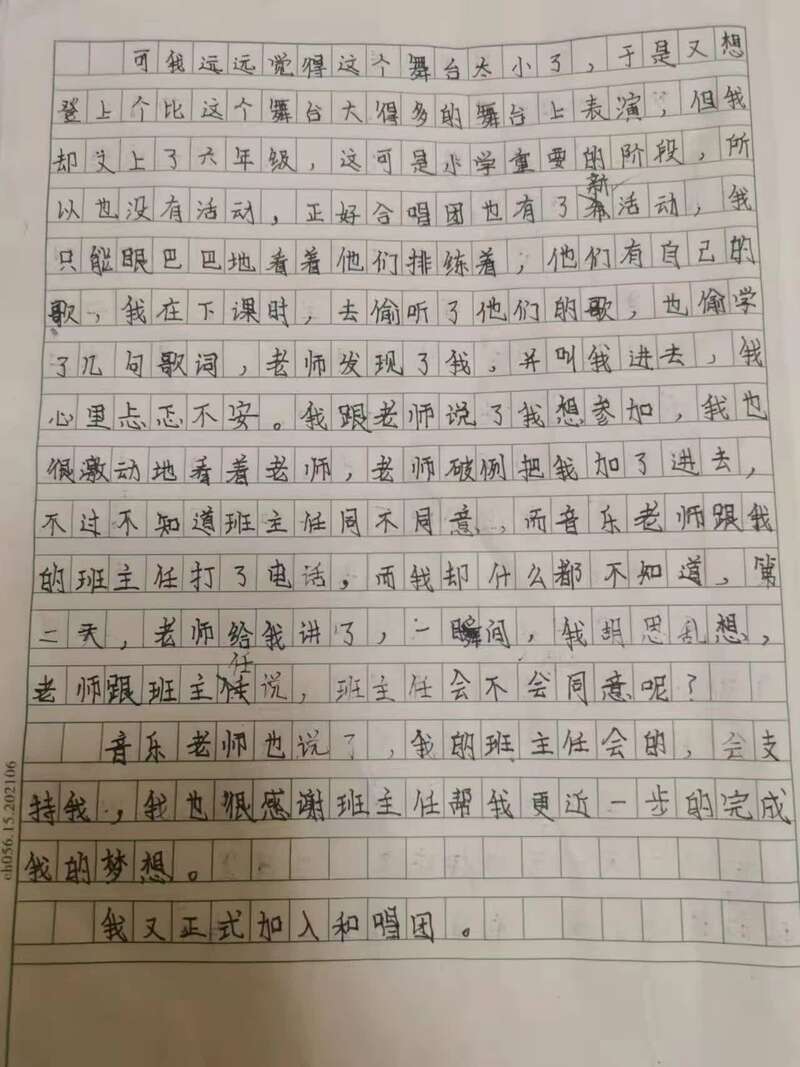 可我远远觉得这个舞台太小了，于是又想
登上个比这个舞台大得多的舞台上表演，但我
却又上了六年级，这可是小学重要的阶段，所
以也没有活动，正好合唱团也有了新活动，我
只能眼巴巴地看着他们排练着，他们有自己的
歌、我在下课时，去偷听了他们的歌，也偷学
了几句歌词，老师发现了我，并叫我进去，我
心里忐忑不安。我跟老师说了我想参加，我也
很激动地看着老师，老师破例把我加了进去，
不过不知道班主任同不同意，而音乐老师跟我
的班主任打了电话，而我却什么都不知道，第
二天，老师给我讲了，一瞬间，我胡思乱想，
老师跟班主任说，班主任会不会同意呢？
音乐老师也说了，我的班主任会的，会支
持我，我也很感谢班主任帮我更近一步的完成
我的梦想。
我又正式加入和唱团。
ch056.15.202106